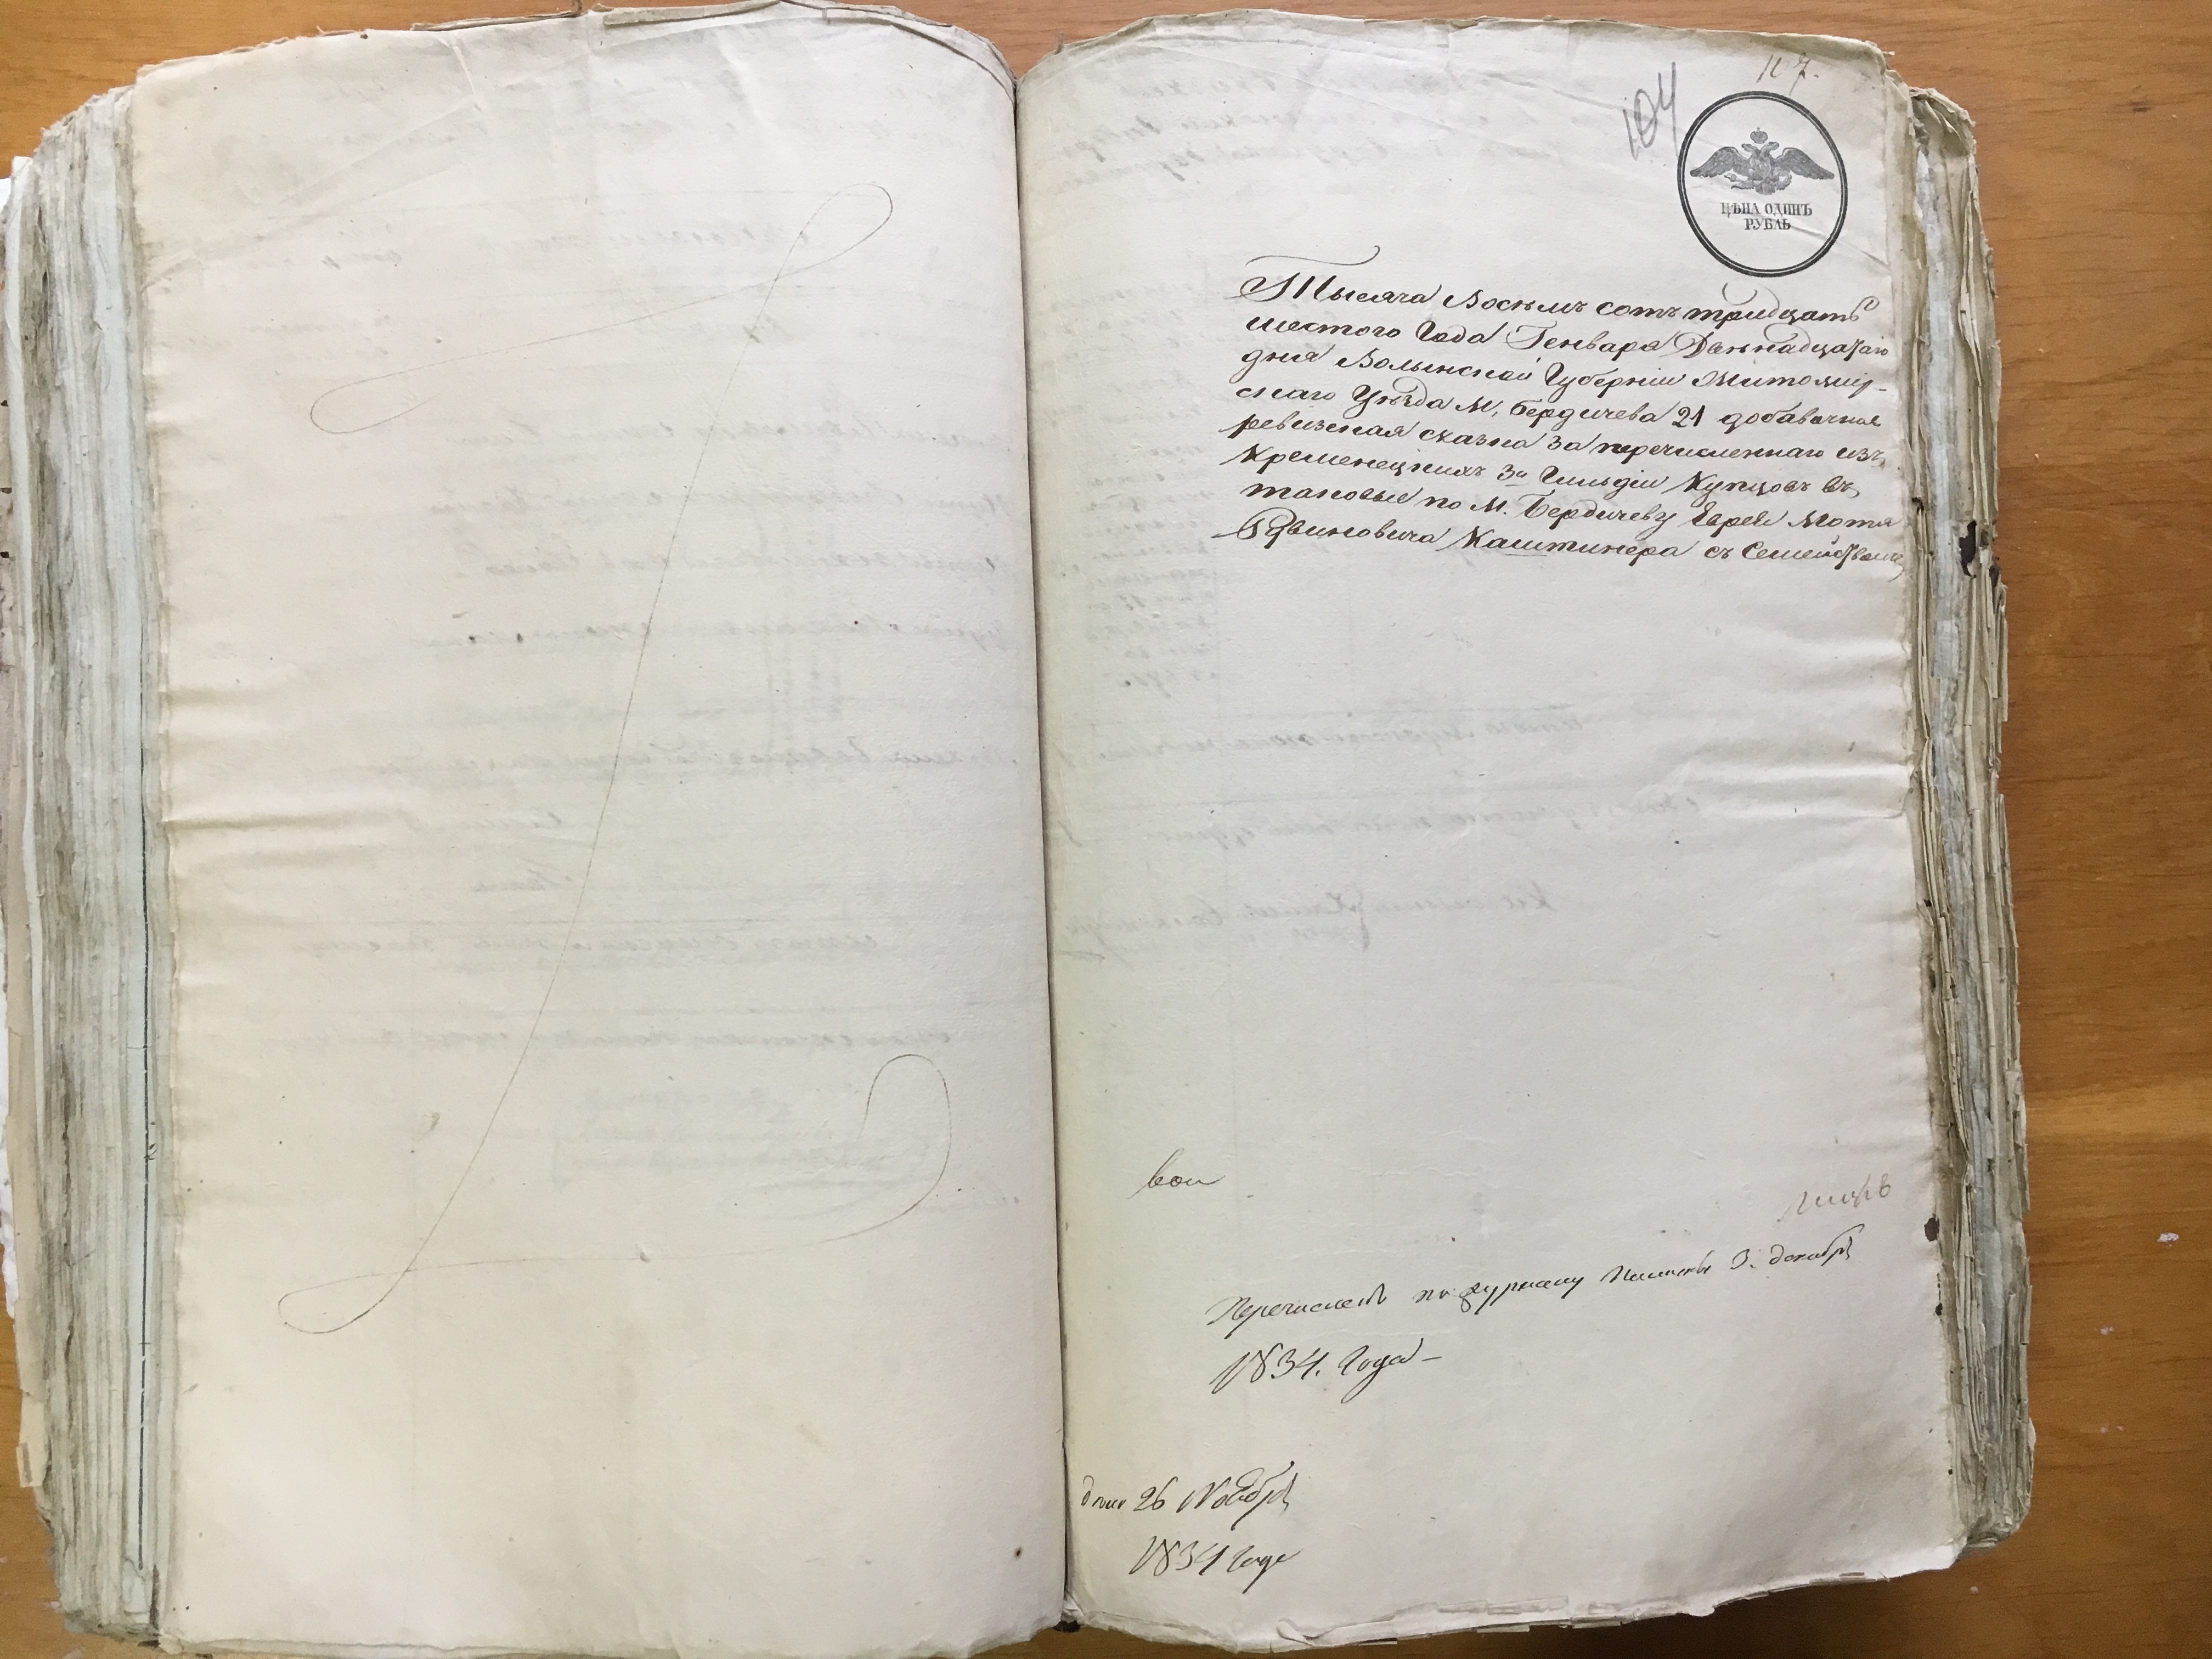 117.
104
ЦѢНА ОДИНЪ
РУБЛЬ
Тысяча Восемь сотъ тридцать
шестого Года Генваря Двенадцатаго
дня Волынской Губерніи Житомир-
скаго Уѣзда М. Бердичева 21 добавочная
ревизская сказка за перечисленнаго изъ
Кременецкихъ 3й Гильдіи Купцовъ въ
таковые по М. Бердичеву Еврея Мотя
Рувиновича Каштинера съ Семействомъ
Перечисленъ по журналу Палаты 3. декабря
1834. Года —
дни 26 Ноября
1834 Года